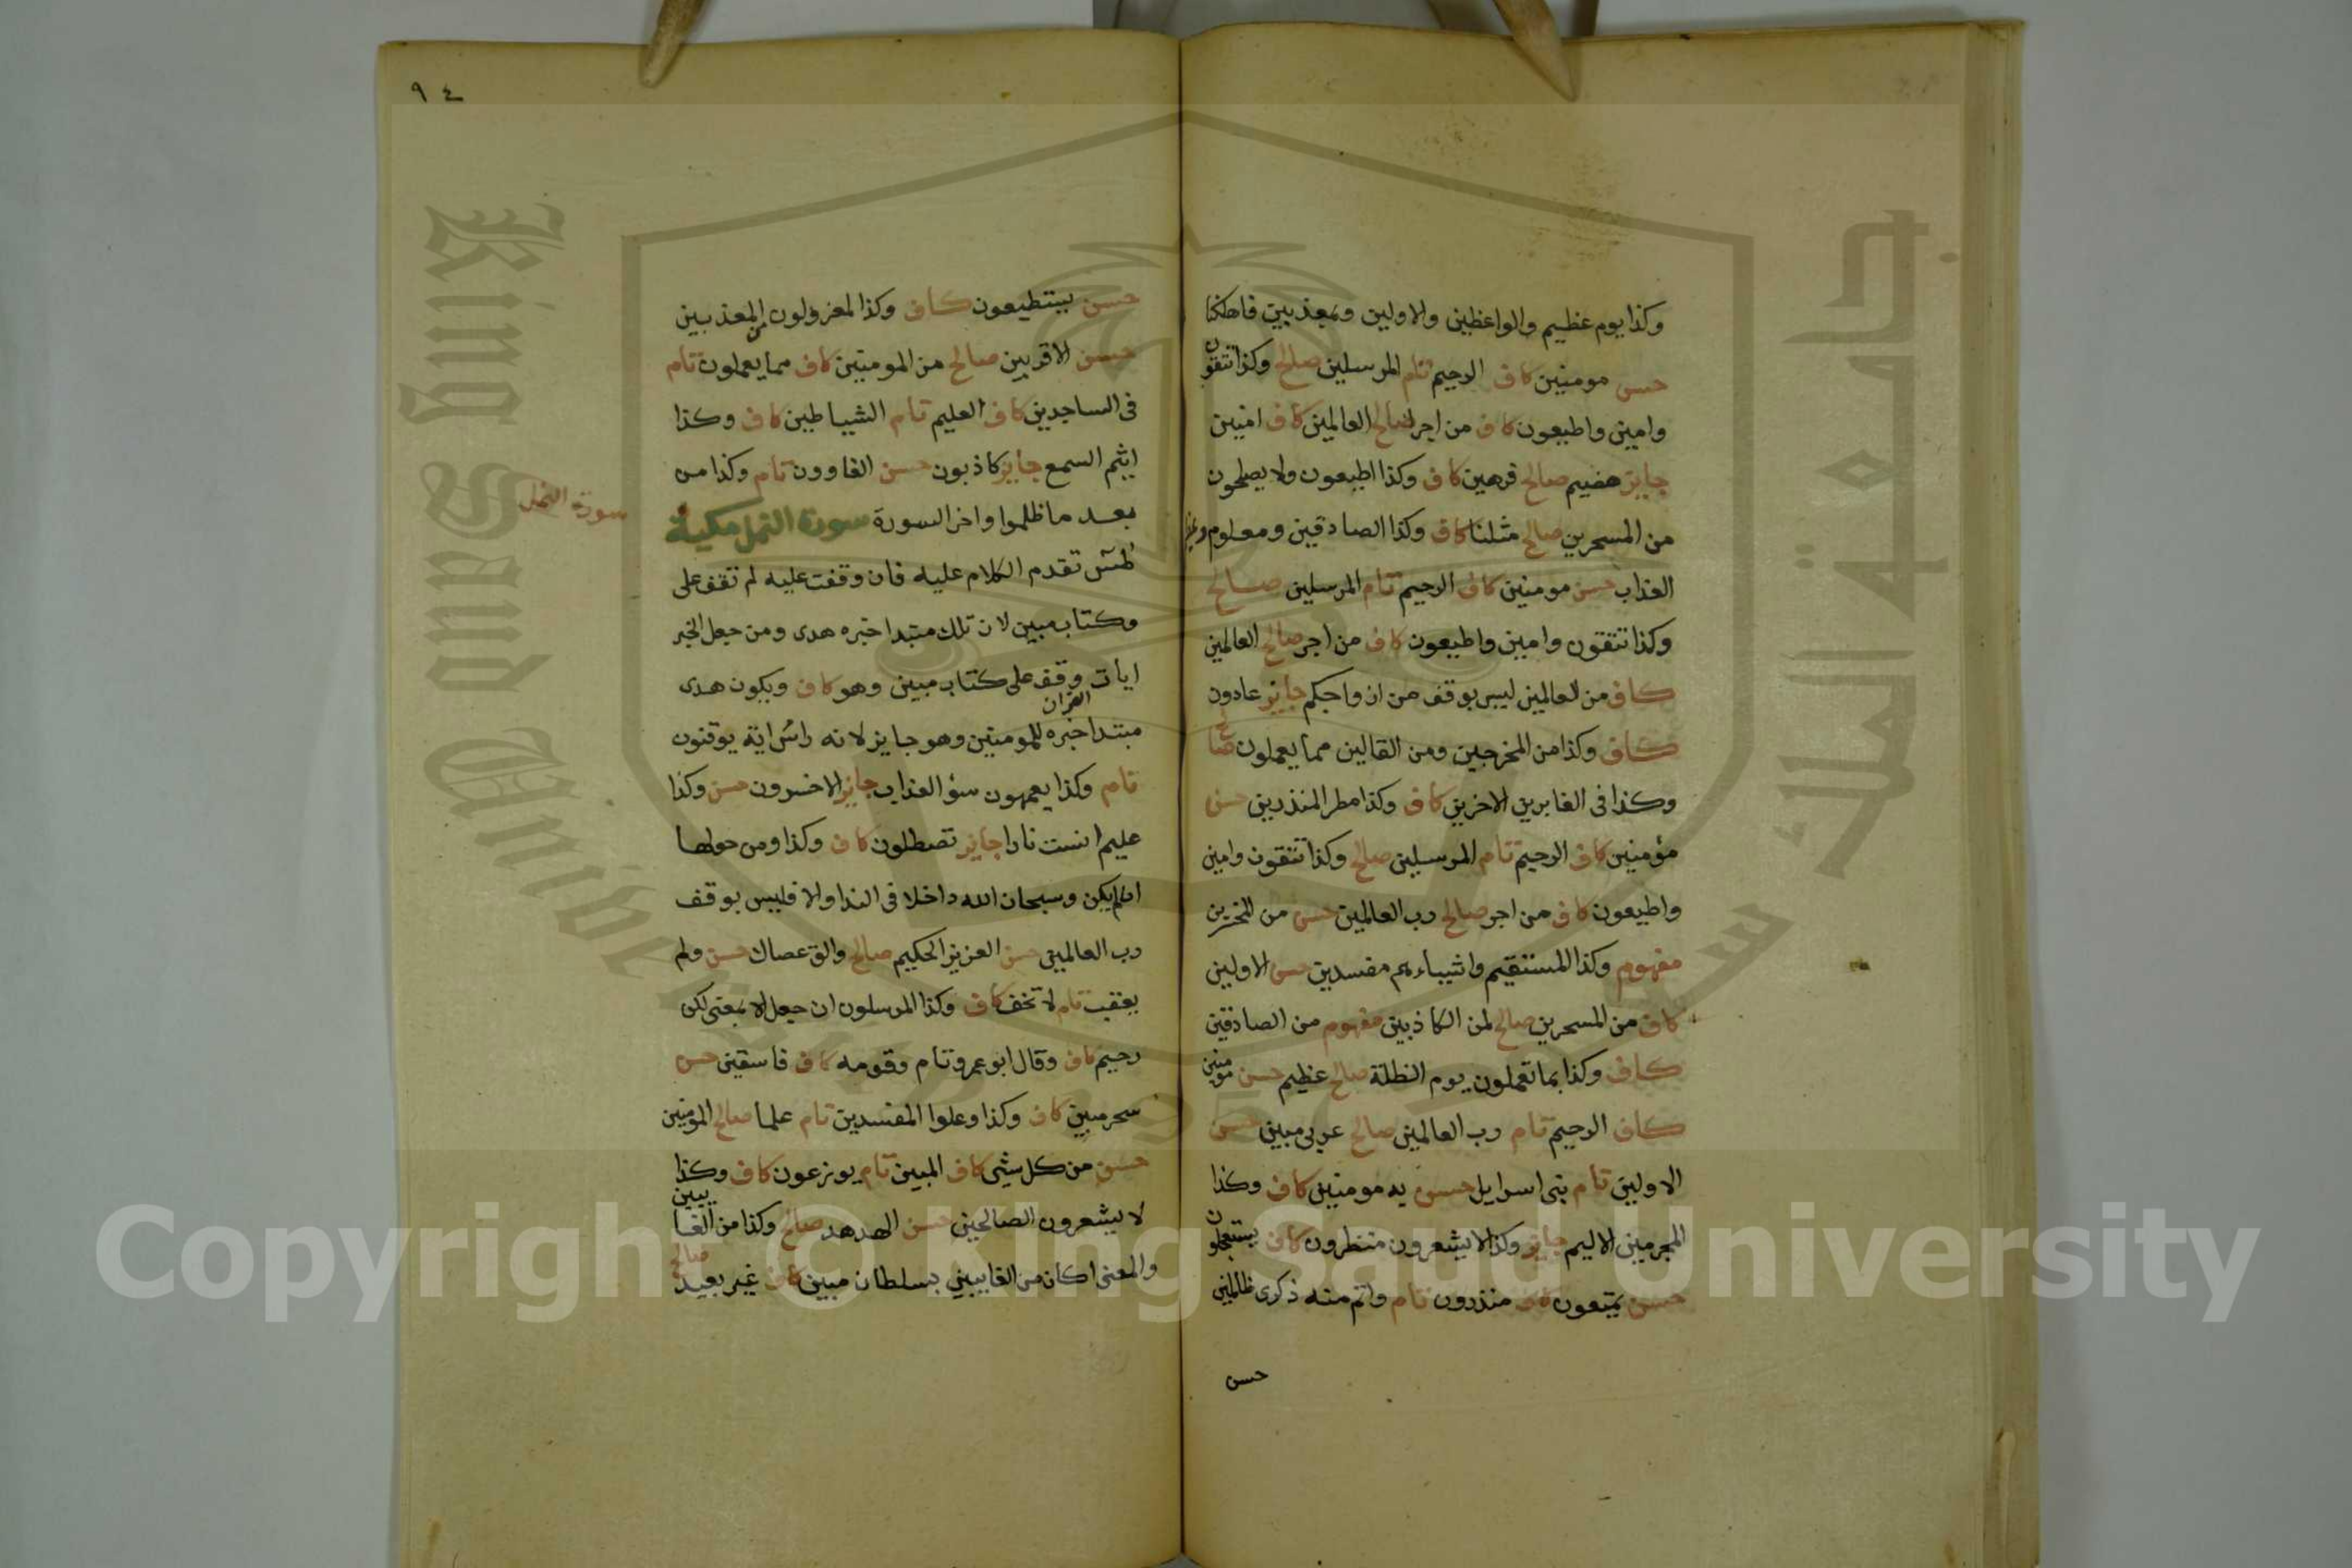 وكذا يوم عظيم والواعظين والاولين وبمعذبين فاهلكنا
حسن مومنين كاف الرحيم تام المرسلين صالح وكذا تتقون
وامين واطيعون كاف من اجر صالح العالمين كاف امنين
جايز هضيم صالح فرهين كاف وكذا اطيعون ولا يصلحون
من المسحرين صالح مثلنا كاف وكذا الصادقين ومعلوم
العذاب حسن مومنين كاف الرحيم تام المرسلين صالح
وكذا تتقون وامين واطيعون كاف من اجر صالح العالمين
كاف من العالمين ليس بوقف من ازواجكم جايز عادون
كاف وكذا من المخرجين ومن القالين مما يعملون صالح
وكذا فى الغابرين الاخرين كاف وكذا مطر المنذرين حسن
مؤمنين كاف الرحيم تام المرسلين صالح وكذا تتقون وامين
واطيعون كاف من اجر صالح رب العالمين حسن من المخسرين
مفهوم وكذا المستقيم واشياءهم مفسدين حسن الاولين
كاف من المسحرين صالح لمن الكاذبين مفهوم من الصادقين
كاف وكذا بما تعملون يوم الظلة صالح عظيم حسن مومنين
كاف الرحيم تام رب العالمين صالح عربى مبين حسن
الاولين تام بنى اسرايل حسن به مومنين كاف وكذا
المجرمين الاليم جايز وكذا لا يشعرون منظرون كاف يستعجلون
حسن يمتعون كاف منذرون تام واتم منه ذكرى ظالمين
حسن
٩٤
حسن يستطيعون كاف وكذا لمعزولون من المعذبين
حسن الاقربين صالح من المومنين كاف مما يعملون تام
فى الساجدين كاف العليم تام الشياطين كاف وكذا
اثيم السمع جايز كاذبون حسن الغاوون تام وكذا من
بعد ما ظلموا واخر السورة سورة النمل مكية
سورة النمل
طس تقدم الكلام عليه فان وقفت عليه لم تقف على
وكتاب مبين لان تلك مبتدا خبره هدى ومن جعل الخبر
ايات وقف على كتاب مبين وهو كاف ويكون هدى
القران
مبتدا خبره للمومنين وهو جايز لانه راس اية يوقنون
تام وكذا يعمهون سؤ العذاب جايز الاخسرون حسن وكذا
عليم انست نارا جايز تصطلون كاف وكذا ومن حولها
ان لم يكن وسبحان الله داخلا فى الندا والا فليس بوقف
رب العالمين حسن العزيز الحكيم صالح والق عصاك حسن ولم
يعقب تام لا تخف كاف وكذا المرسلون ان جعل الا بمعنى لكن
رحيم كاف وقال ابو عمرو تام وقومه كاف فاسقين حسن
سحر مبين كاف وكذا وعلوا المفسدين تام علما صالح المومنين
حسن من كل شيى كاف المبين تام يوزعون كاف وكذا
لا يشعرون الصالحين حسن الهدهد صالح وكذا من الغايبين
والمعنى اكان من الغايبين بسلطان مبين كاف غير بعيد صالح
King Saud University
جامعة الملك سعود
Copyright © King Saud University